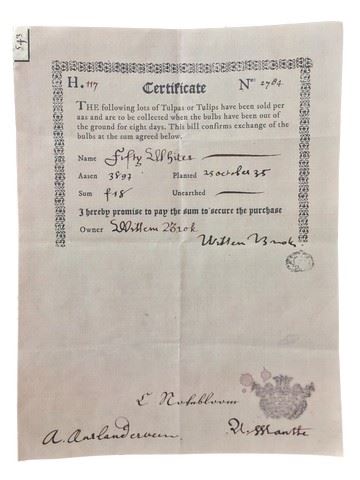 543
H. 117 Certificate Nº 2784
THE following lots of Tulpas or Tulips have been sold per
aas and are to be collected when the bulbs have been out of
the ground for eight days. This bill confirms exchange of the
bulbs at the sum agreed below.
Name Fifty Whites
Aasen 3897 Planted 25 october 35
Sum f 18 Unearthed
I hereby promise to pay the sum to secure the purchase
Owner Willem Brok
Willem Brok
C Notebloom